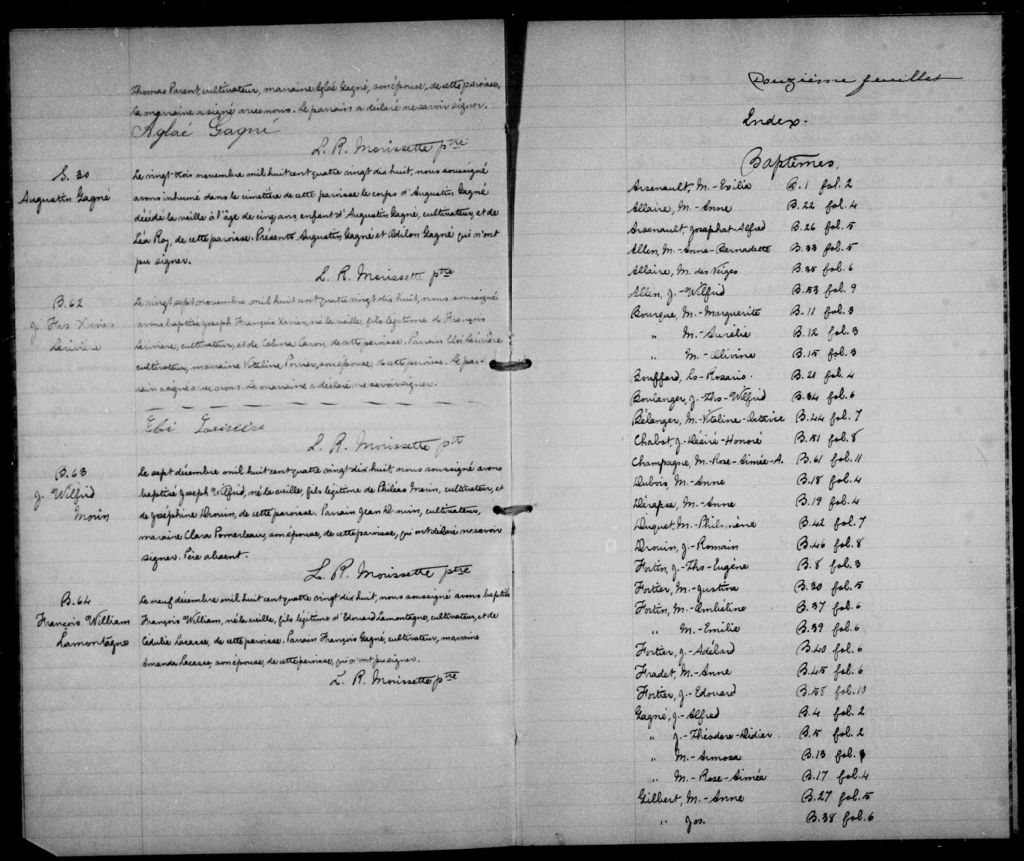 Thomas Parent, cultivateur, marraine Aglaé Gagné, son épouse, de cette paroisse,
la marraine a signé avec nous. Le parrain a déclaré ne savoir signer.
Aglaé Gagné
L. R. Morissette ptre
S. 30
Augustin Gagné
Le vingt trois novembre mil huit cent quatre vingt dix huit, nous soussigné
avons inhumé dans le cimetière de cette paroisse le corps d'Augustin Gagné
décédé la veille à l'âge de cinq ans, enfant d'Augustin Gagné, cultivateur, et de
Léa Roy, de cette paroisse. Présents Augustin Gagné et Odilon Gagné qui n'ont
pu signer.
L. R. Morissette ptre
B. 62
J. Frs Xavier
Larivière
Le vingt sept novembre mil huit cent quatre vingt dix huit, nous soussigné
avons baptisé Joseph François Xavier, né la veille, fils légitime de François
Larivière, cultivateur, et de Celina Caron, de cette paroisse. Parrain Larivière
cultivateur, marraine Vitaline Poirier, son épouse, de cette paroisse. Le par-
rain a signé avec nous. La marraine a déclaré ne savoir signer.
L. R. Morissette ptr
B. 63
J. Wilfrid
Morin
Le sept décembre mil huit cent quatre vingt dix huit, nous soussigné avons
baptisé Joseph Wilfrid, né la veille, fils légitime de Philéas Morin, cultivateur, et
de Joséphine Drouin, de cette paroisse. Parrain Jean Drouin, cultivateur,
marraine Clara Pomerleau, son épouse, de cette paroisse, qui ont déclaré ne savoir
signer. Père absent.
L. R. Morissette ptre
B. 64
François William
Lamontagne
Le neuf décembre mil huit cent quatre vingt dix huit, nous soussigné avons baptisé
François William, né la veille, fils légitime d'Edouard Lamontagne, cultivateur, et de
Cédulie Lacasse, de cette paroisse. Parrain François Gagné, cultivateur, marraine
Amanda Lacasse, son épouse, de cette paroisse, qui n'ont pu signer.
L. R. Morissette ptre
Douzième feuillet
Index.
Baptêmes.
Arsenault, M.-Exilia B. 1 fol. 2
Allaire, M.-Anne B. 22 fol. 4
Arsenault, Josaphat-Alfred B. 26 fol. 5
Allen, M.-Anne-Bernadette B. 33 fol. 5
Allaire, M. des Neiges B. 35 fol. 6
Allen, J.-Wilfrid B. 53 fol. 9
Bourque, M.-Marguerite B. 11 fol. 3
" M.-Aurélie B. 12 fol. 3
" M.-Olivine B. 15 fol. 3
Bouffard, Ls-Rosario. B. 21 fol. 4
Boulanger, J.-Ths-Wilfrid B. 34 fol. 6
Bélanger, M.-Vitaline B. 44 fol. 7
Chabot, J.-Désiré-Honoré B. 51 fol. 8
Champagne, M.-Rose-Aimée-A. B. 61 fol. 11
Dubois, M.-Anne B. 18 fol. 4
M.-Anne B. 19 fol. 4
Duquet, M.-Philomène B. 42 fol. 7
Drouin, J.-Romain B. 46 fol. 8
Fortin, J.-Ths-Eugène B. 8 fol. 3
Fortier, M.-Justina B. 30 fol. 5
Fortin, M.-Ombéline B. 37 fol. 6
" M.-Emilie B. 39 fol. 6
Fortier, J.-Adélard B. 40 fol. 6
Fradet, M.-Anne B. 45 fol. 6
Fortier, J.-Edouard B. 55 fol. 10
Gagné, J.-Alfred B. 4 fol. 2
" J.-Théodore-Didier B. 5 fol. 2
" M.-Armosa B. 13 fol. 3
" M.-Rose-Aimée B. 17 fol. 4
Gilbert, M.-Anne B. 27 fol. 5
" Jos. B. 38 fol. 6